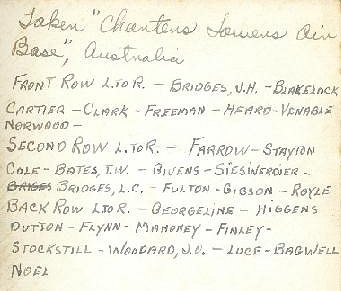 Taken "Charters Towers Air
Base", Australia
FRONT ROW L.TO R. - BRIDGES, J.H. - BLAKELOCK
CARTIER - CLARK - FREEMAN - HEARD - VENABLE
NORWOOD -
SECOND ROW L.TO R. - FARROW - STAYTON
COLE - BATES, T.W. - BIVENS - SIESWERDIER -
BRIGES BRIDGES, L.C. - FULTON - GIBSON - ROYLE
BACK ROW L TO R - GEORGELINE - HIGGENS
DUTTON - FLYNN - MAHONEY - FINLEY -
STOCKSTILL - WOODARD, J.O. - LUCE - BAGWELL
NOEL